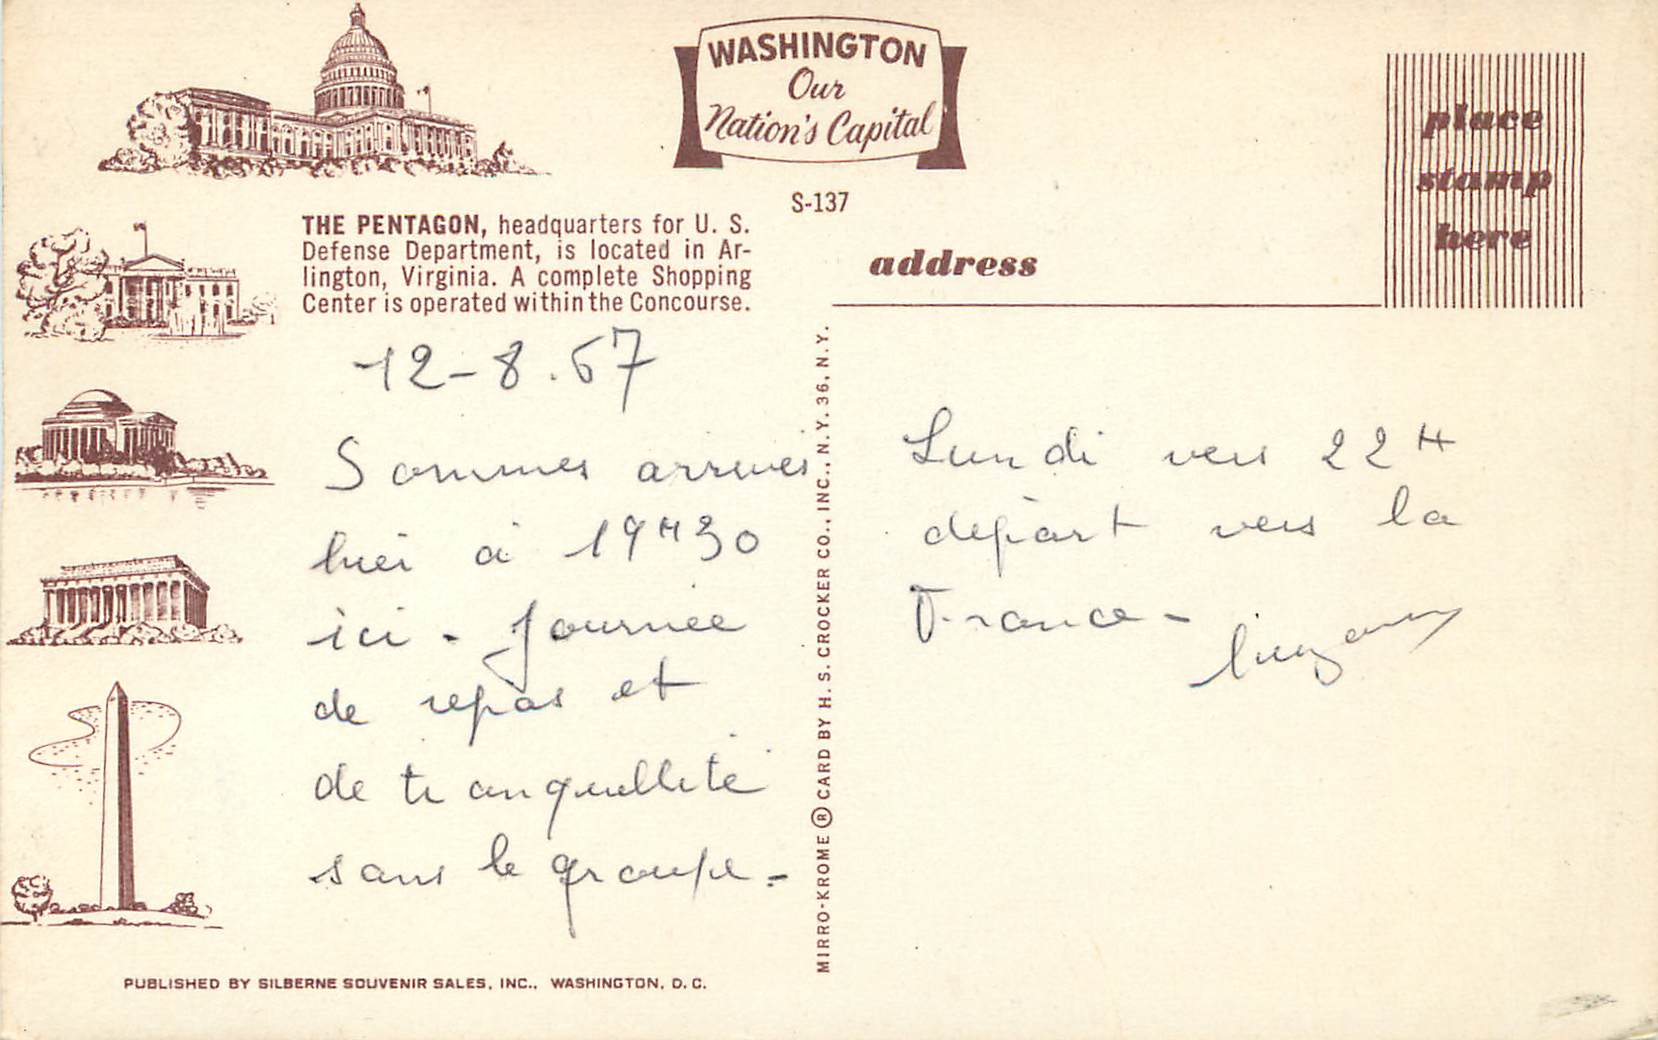 WASHINGTON
Our
Nation's Capital
S-137
THE PENTAGON, headquarters for U. S.
Defense Department, is located in Ar-
lington, Virginia. A complete Shopping
Center is operated within the Concourse.
address
place
stamp
here
12-8.67
Sommes arrivés
hier à 19H30
ici - Journée
de repos et
de tranquillité
sans le groupe.-
Lundi vers 22H
départ vers la
France-
MIRRO-KROME ® CARD BY H. S. CROCKER CO., INC., N. Y. 36, N. Y.
PUBLISHED BY SILBERNE SOUVENIR SALES, INC., WASHINGTON, D. C.